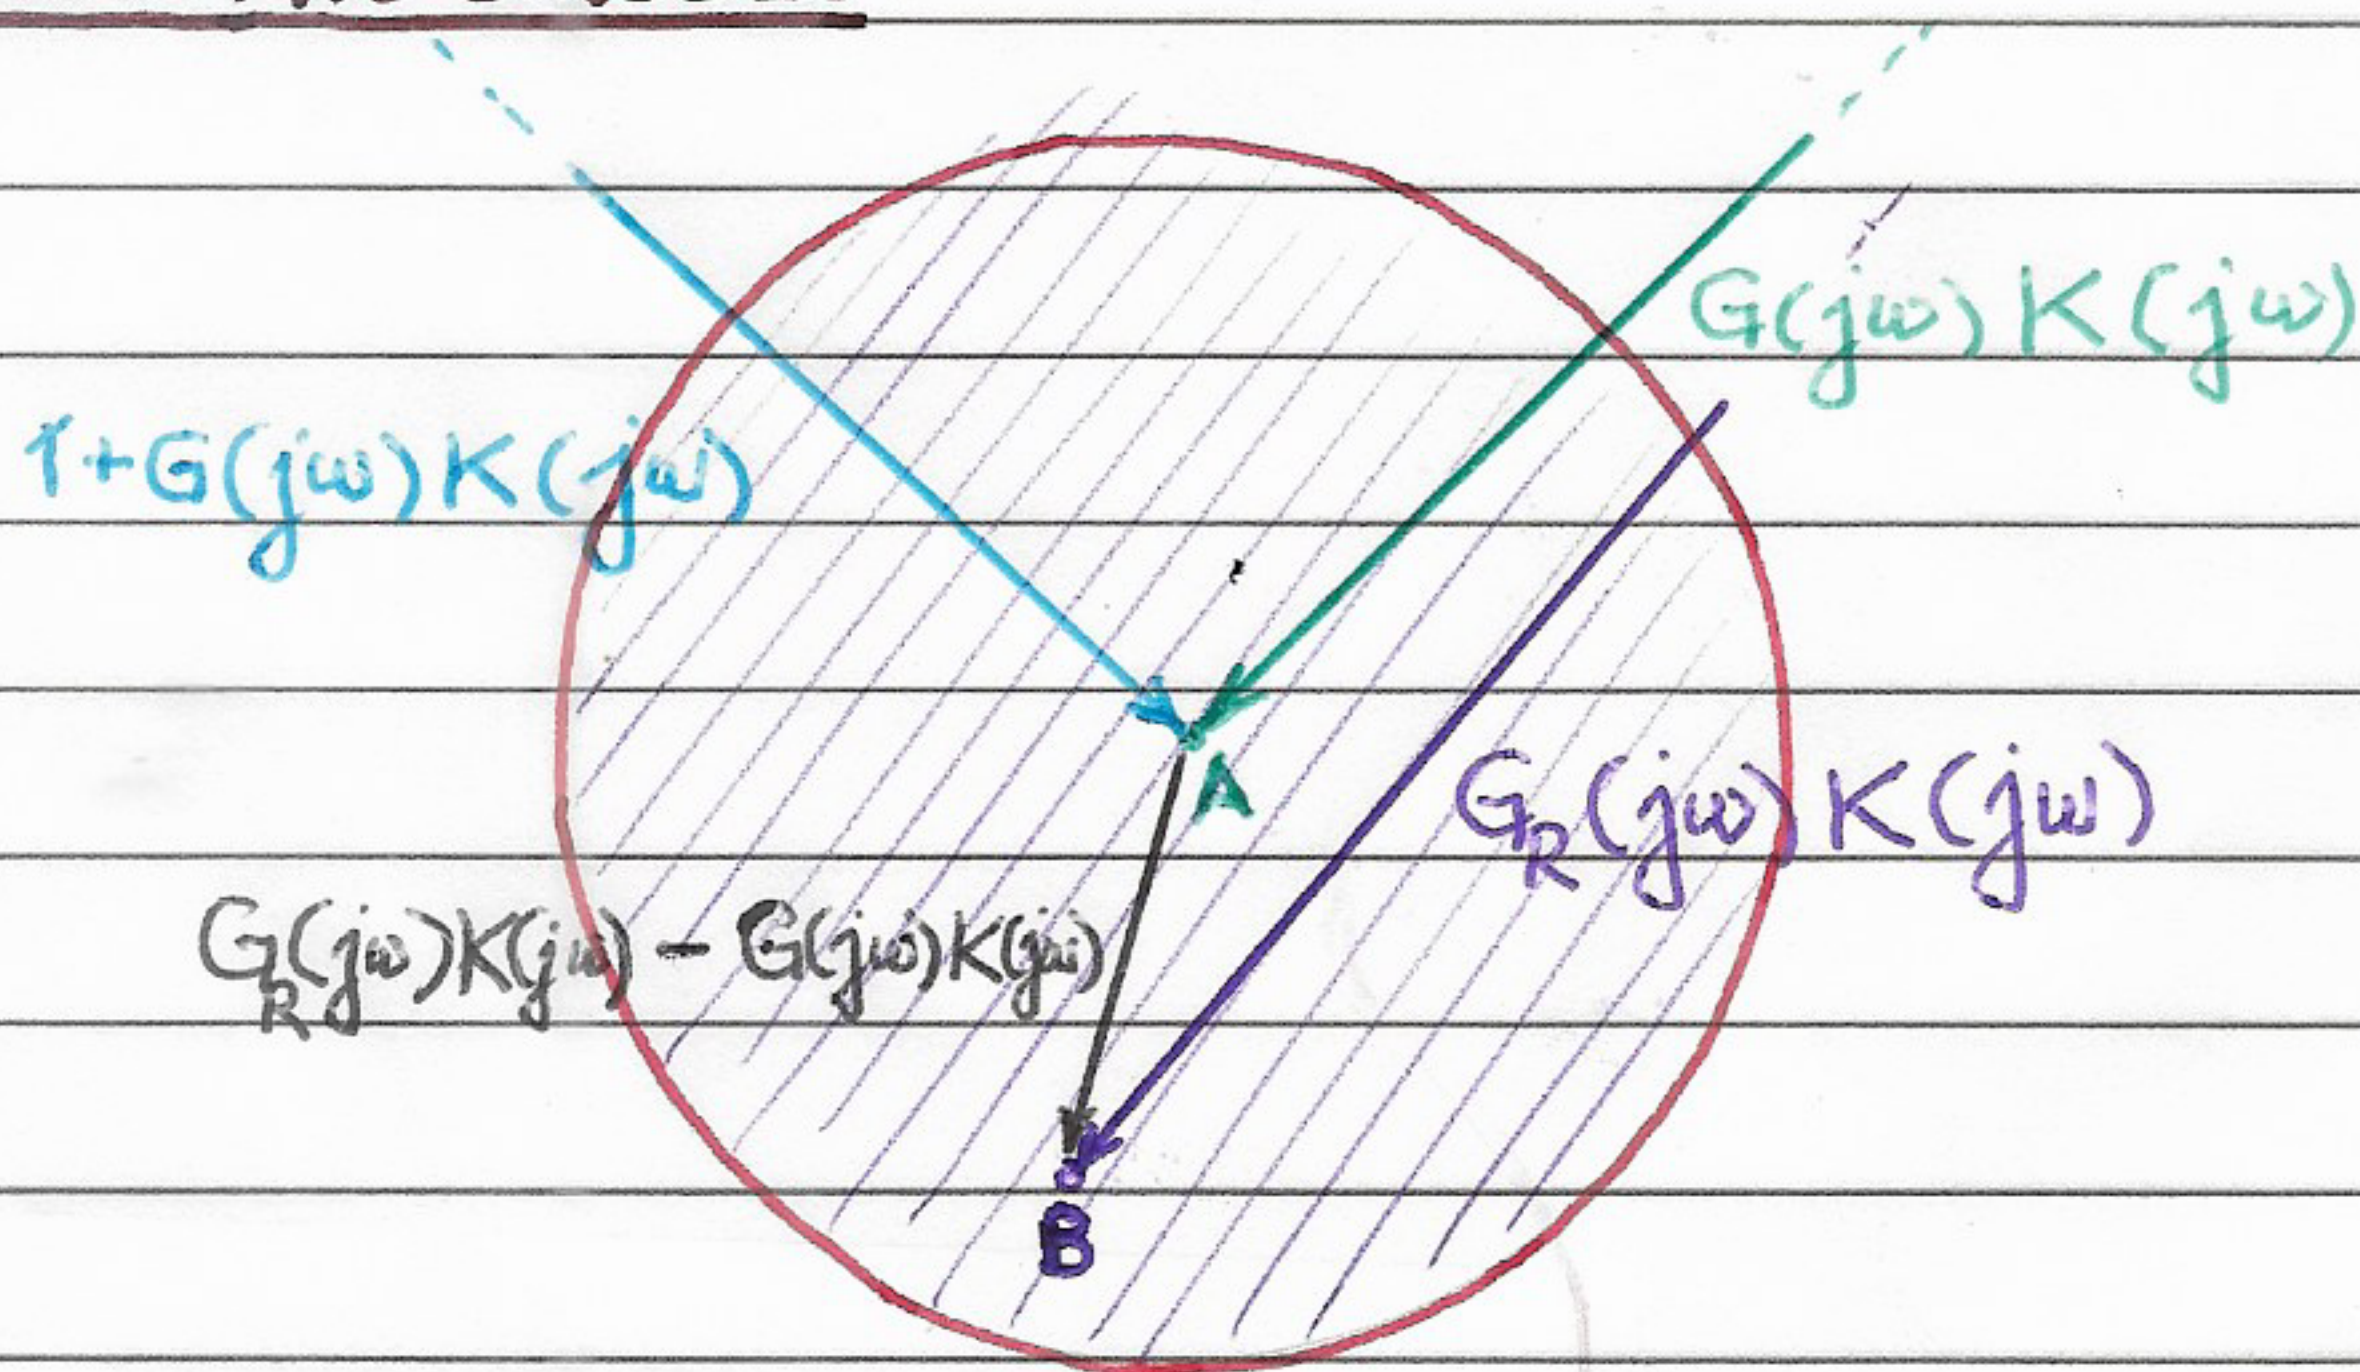 G(jω)K(jω)
1+G(jω)K(jω)
A
G_R(jω)K(jω)
G_R(jω)K(jω) - G(jω)K(jω)
B